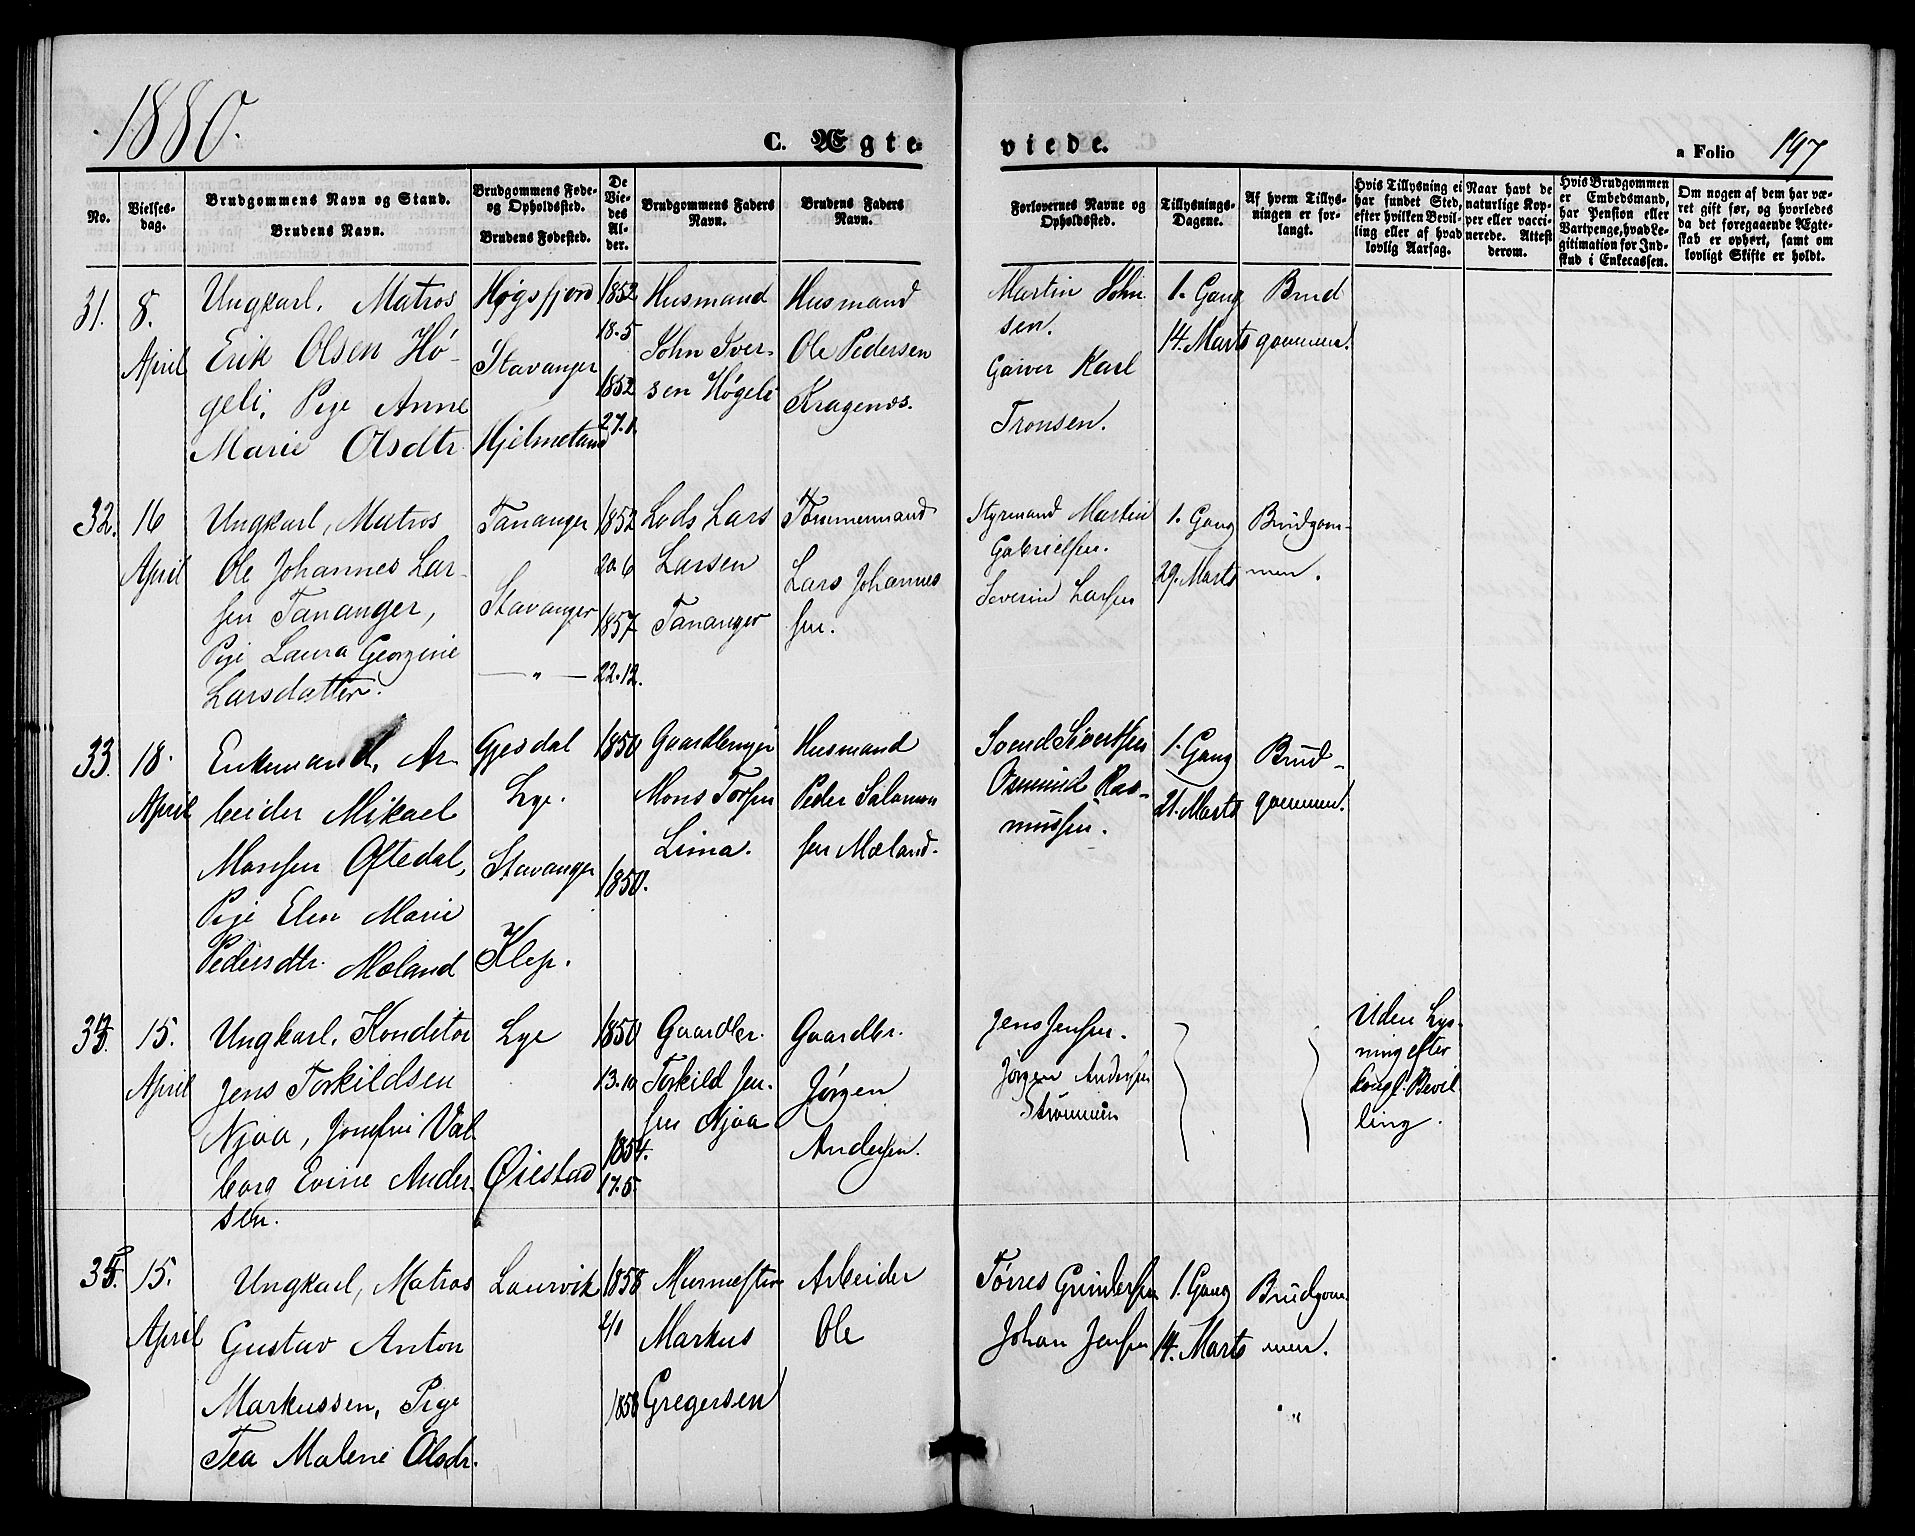 1880.
C. Ægte
viede.
a Folio 197
No.
Vielses-
dag.
Brudgommens Navn og Stand.
Brudens Navn.
Brudgommens Føde-
og Opholdssted.
Brudens Fødested.
De
Vie-
des
Al-
der.
Brudgommens Faders
Navn.
Brudens Faders
Navn.
Forlovernes Navne og
Opholdssted.
Tillysnings-
Dagene.
Af hvem Tillys-
ningen er for-
langt.
Hvis Tillysning ei
har fundet Sted,
efter hvilken Bevil-
ling eller af hvad
lovlig Aarsag.
Naar havt de
naturlige Kop-
per eller vacci-
nerede. Attest
derom.
Hvis Brudgommen
er Embedsmand,
har Pension eller
Vartpenge, hvad Le-
gitimation for Ind-
skud i Enkecassen.
Om nogen af dem har væ-
ret gift før, og hvorledes
da det foregaaende Ægte-
skab er ophørt, samt om
lovligt Skifte er holdt.
31.
8.
April
Ungkarl, Matros
Erik Olsen Hø-
geli, Pige Anne
Marie Olsdtr
Høgsfjord
Stavanger
Hjelmeland
1852
18.5
1852
27.1.
Husmand
John Iver-
sen Høgeli
Husmand
Ole Pedersen
Kragenes.
Martin John
sen.
Karl
Tronsen.
1. Gang
14. Marts
Brud
gommen.
32.
16
April
Ungkarl, Matros
Ole Johannes Lar-
sen Tananger,
Pige Laura Georgine
Larsdatter.
Tananger
Stavanger
— " —
1852
20.6
1857
22.12.
Lods Lars
Larsen
Tananger
Tømmermand
Lars Johannes
sen.
Styrmand Martin
Gabrielsen.
Severin Larsen
1. Gang
29. Marts
Brudgom-
men.
33.
18.
April
Enkemand, Ar-
beider Mikael
Monsen Oftedal,
Pige Elen Marie
Pedersdtr. Mæland
Gjesdal
Lye.
Stavanger
Klep.
1850
1850.
Gaardbruger
Mons Torsen
Lima.
Husmand
Peder Salamon
sen Mæland.
Svend Sivertsen
Osmund Ras-
mussen.
1. Gang
21. Marts
Brud-
gommen.
15.
April
Ungkarl, Konditor
Jens Torkildsen
Njaa, Josefine Val
borg Evine Ander-
sen.
Lye
Øiestad
1850
13.10
1854.
17.5.
Gaardbr.
Torkild Jen-
sen Njaa
Gaardbr.
Jørgen
Andersen.
Jens Jensen.
Jørgen Andersen
Strømmen
Uden Lys-
ning efter
kongl. Bevil
ling.
35.
15.
April
Ungkarl, Matros
Gustav Anton
Markussen, Pige
Tea Malene Olsdr.
Laurvik
1858
2/1
1858
Murmester
Markus
Gregersen
Arbeider
Ole
Tørres Gundersen
Johan Jensen
1. Gang
14. Marts
Brudgom
men.
"